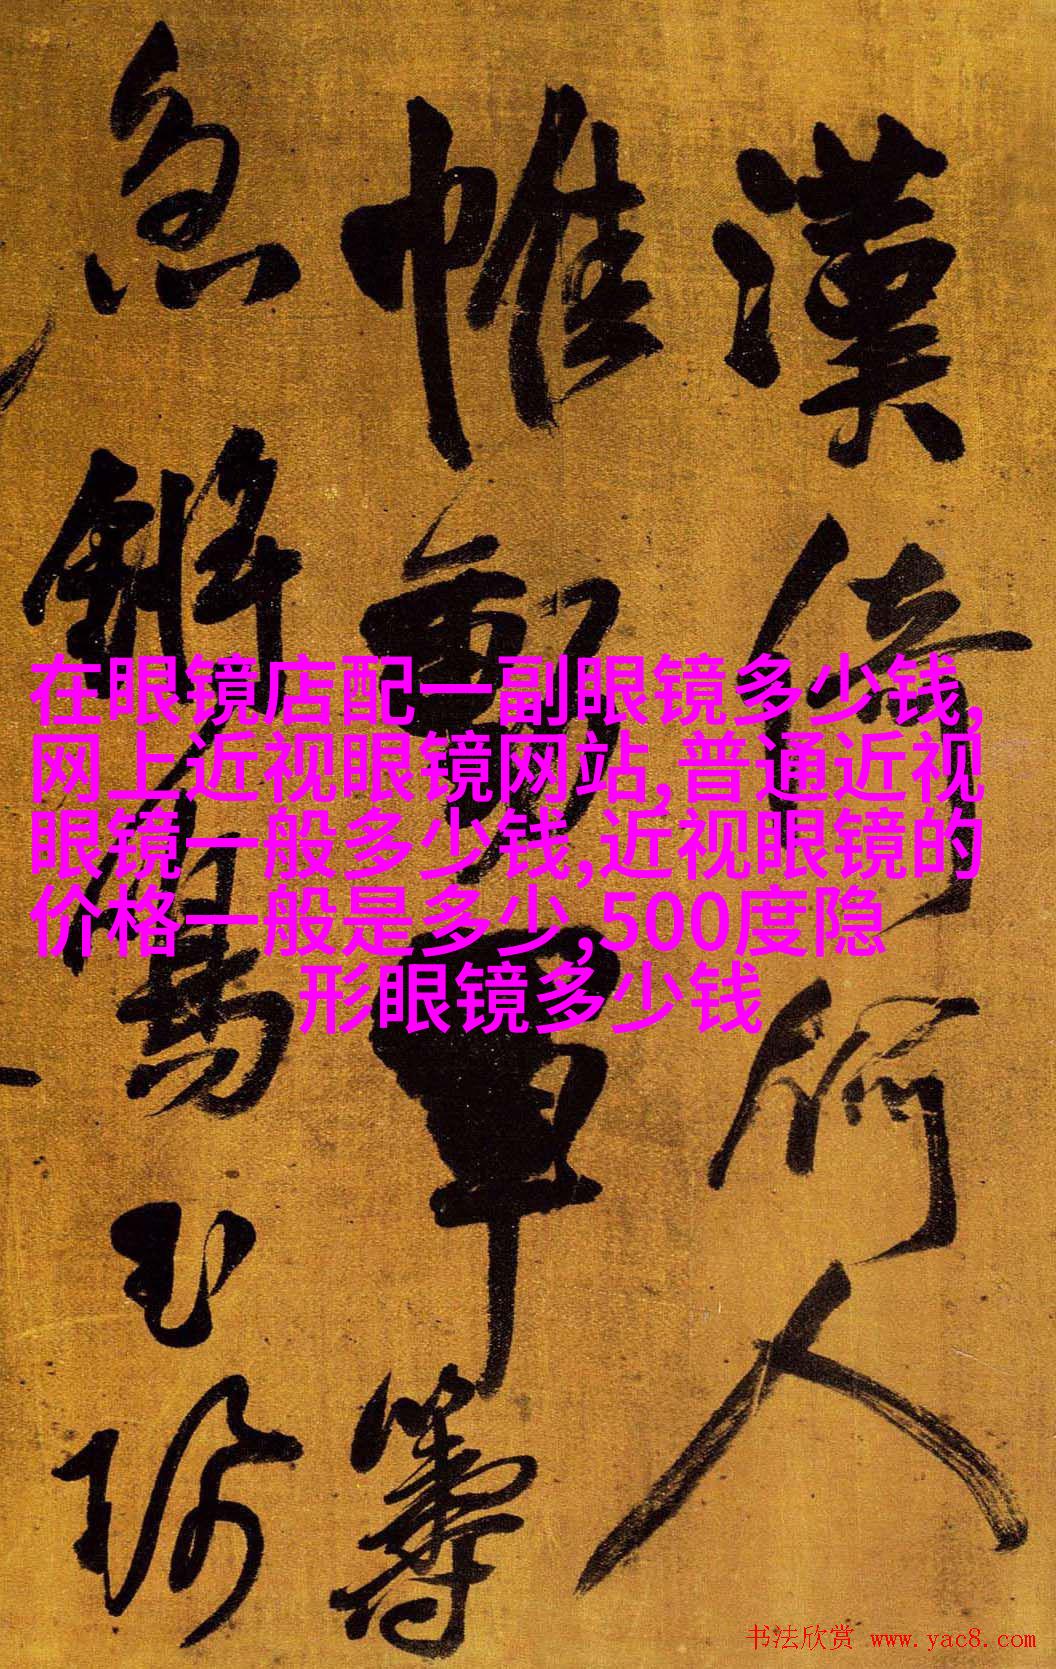 漢倚何人
帷動軍籌
急
玉
在眼镜店配一副眼镜多少钱,
网上近视眼镜网站,普通近视
眼镜一般多少钱,近视眼镜的
价格一般是多少,500度隐
形眼镜多少钱
书法欣赏 www.yac8.com